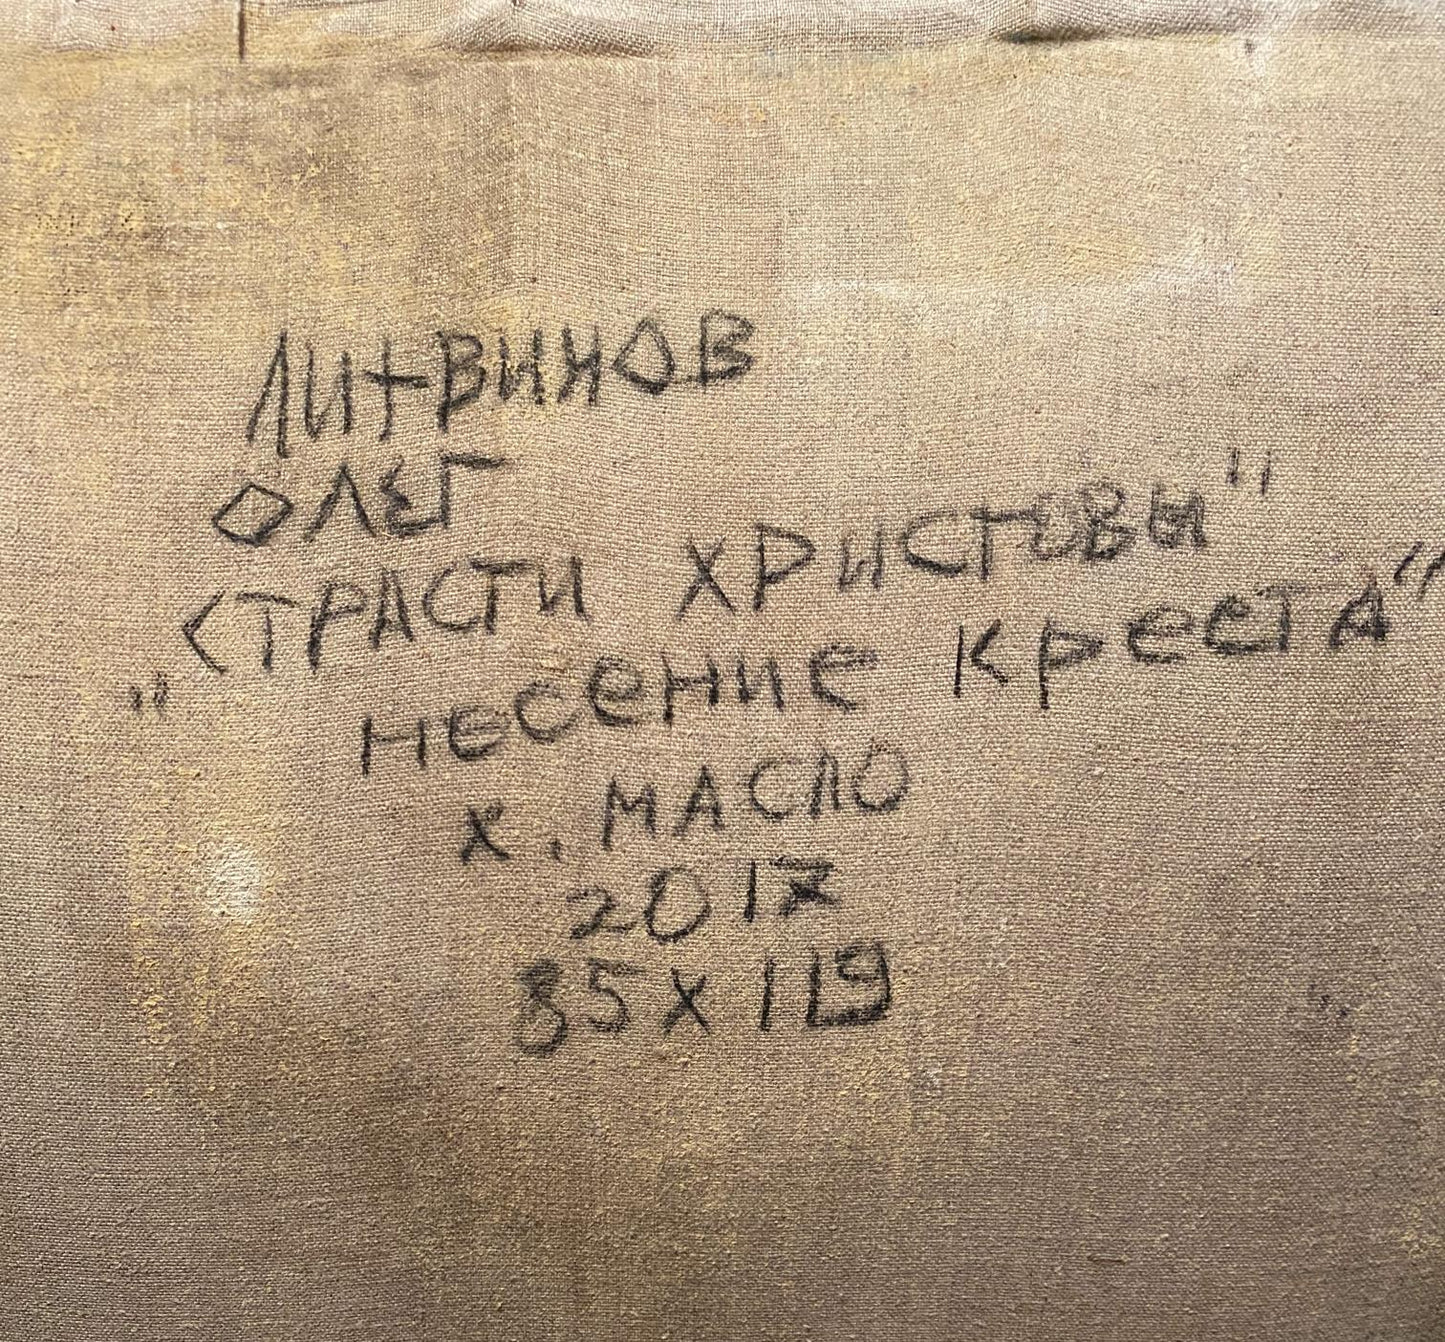 ЛИТВИНОВ
ОЛЕГ
"СТРАСТИ ХРИСТОВЫ"
НЕСЕНИЕ КРЕСТА"
х. МАСЛО
2017
85х119